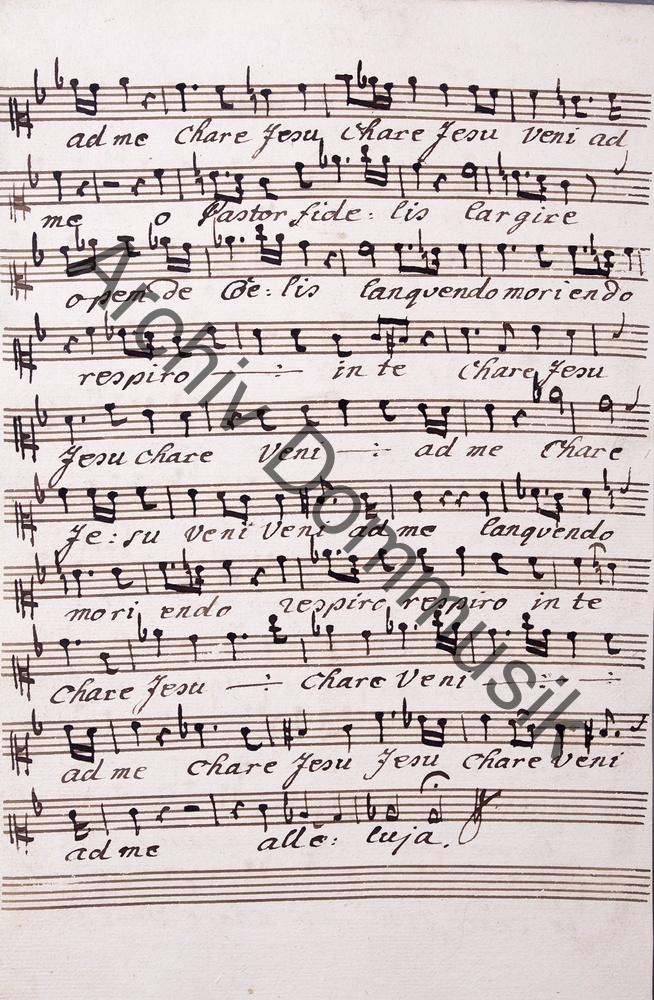 ad me Chare Jesu Chare Jesu Veni ad
me o Pastor fide: lis largire
opem de Coe: lis lanquendo moriendo
respiro —:— in te Chare Jesu
Jesu Chare Veni —:— ad me Chare
Je: su Veni Veni ad me lanquendo
mori endo respiro respiro in te
Chare Jesu —:— Chare Veni —:—
ad me Chare Jesu Jesu Chare Veni
ad me alle: luja.
Archiv Dommusik